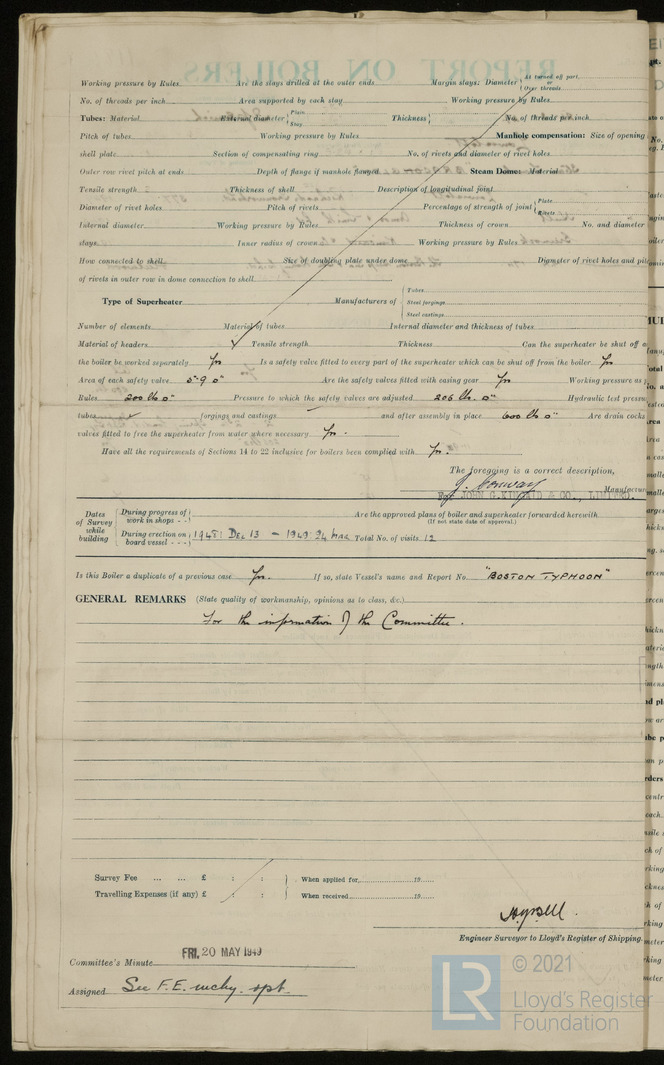 Working pressure by Rules Are the stays drilled at the outer ends Margin stays: Diameter { At turned off part. or Over threads
No. of threads per inch Area supported by each stay Working pressure by Rules
Tubes: Material External diameter { Plain Stay Thickness { No. of threads per inch
Pitch of tubes Working pressure by Rules Manhole compensation: Size of opening
shell plate Section of compensating ring No. of rivets and diameter of rivet holes
Outer row rivet pitch at ends Depth of flange if manhole flanged Steam Dome: Material
Tensile strength Thickness of shell Description of longitudinal joint
Diameter of rivet holes Pitch of rivets Percentage of strength of joint { Plate Rivets
Internal diameter Working pressure by Rules Thickness of crown No. and diameter
stays Inner radius of crown Working pressure by Rules
How connected to shell Size of doubling plate under dome Diameter of rivet holes and
of rivets in outer row in dome connection to shell
Type of Superheater Manufacturers of { Tubes Steel forgings Steel castings
Number of elements Material of tubes Internal diameter and thickness of tubes
Material of headers Tensile strength Thickness Can the superheater be shut off
the boiler be worked separately Yes Is a safety valve fitted to every part of the superheater which can be shut off from the boiler Yes
Area of each safety valve 5·9 □" Are the safety valves fitted with easing gear Yes Working pressure as
Rules 200 lbs □" Pressure to which the safety valves are adjusted 206 lbs. □" Hydraulic test pressure
tubes forgings and castings and after assembly in place 600 lbs □" Are drain cocks
valves fitted to free the superheater from water where necessary Yes.
Have all the requirements of Sections 14 to 22 inclusive for boilers been complied with Yes.
The foregoing is a correct description,
J. Conway
For JOHN G. KINCAID & CO., LIMITED. Manufacturer
Dates of Survey while building { During progress of work in shops - - Are the approved plans of boiler and superheater forwarded herewith
(If not state date of approval.)
During erection on board vessel - - - 1948: DEC 13 - 1949 24 MAR Total No. of visits 12
Is this Boiler a duplicate of a previous case Yes. If so, state Vessel's name and Report No. "BOSTON TYPHOON"
GENERAL REMARKS (State quality of workmanship, opinions as to class, &c.)
For the information of the Committee.
Survey Fee ... ... £ : : } When applied for 19
Travelling Expenses (if any) £ : : } When received 19
Engineer Surveyor to Lloyd's Register of Shipping.
Committee's Minute FRI. 20 MAY 1949
Assigned See F.E. mchy. rpt.
© 2021
LR Lloyd's Register
Foundation